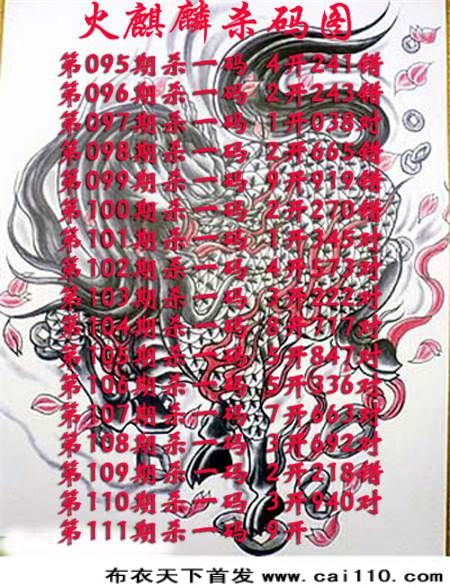 火麒麟杀码图
第095期杀一码 4开241错
第096期杀一码 2开243错
第097期杀一码 1开038对
第098期杀一码 2开665错
第099期杀一码 9开919错
第100期杀一码 2开270错
第101期杀一码 1开345对
第102期杀一码 4开573对
第103期杀一码 3开222对
第104期杀一码 8开717对
第105期杀一码 5开847对
第106期杀一码 5开336对
第107期杀一码 7开663对
第108期杀一码 3开692对
第109期杀一码 2开218错
第110期杀一码 3开940对
第111期杀一码 9开
布衣天下首发 www.cai110.com